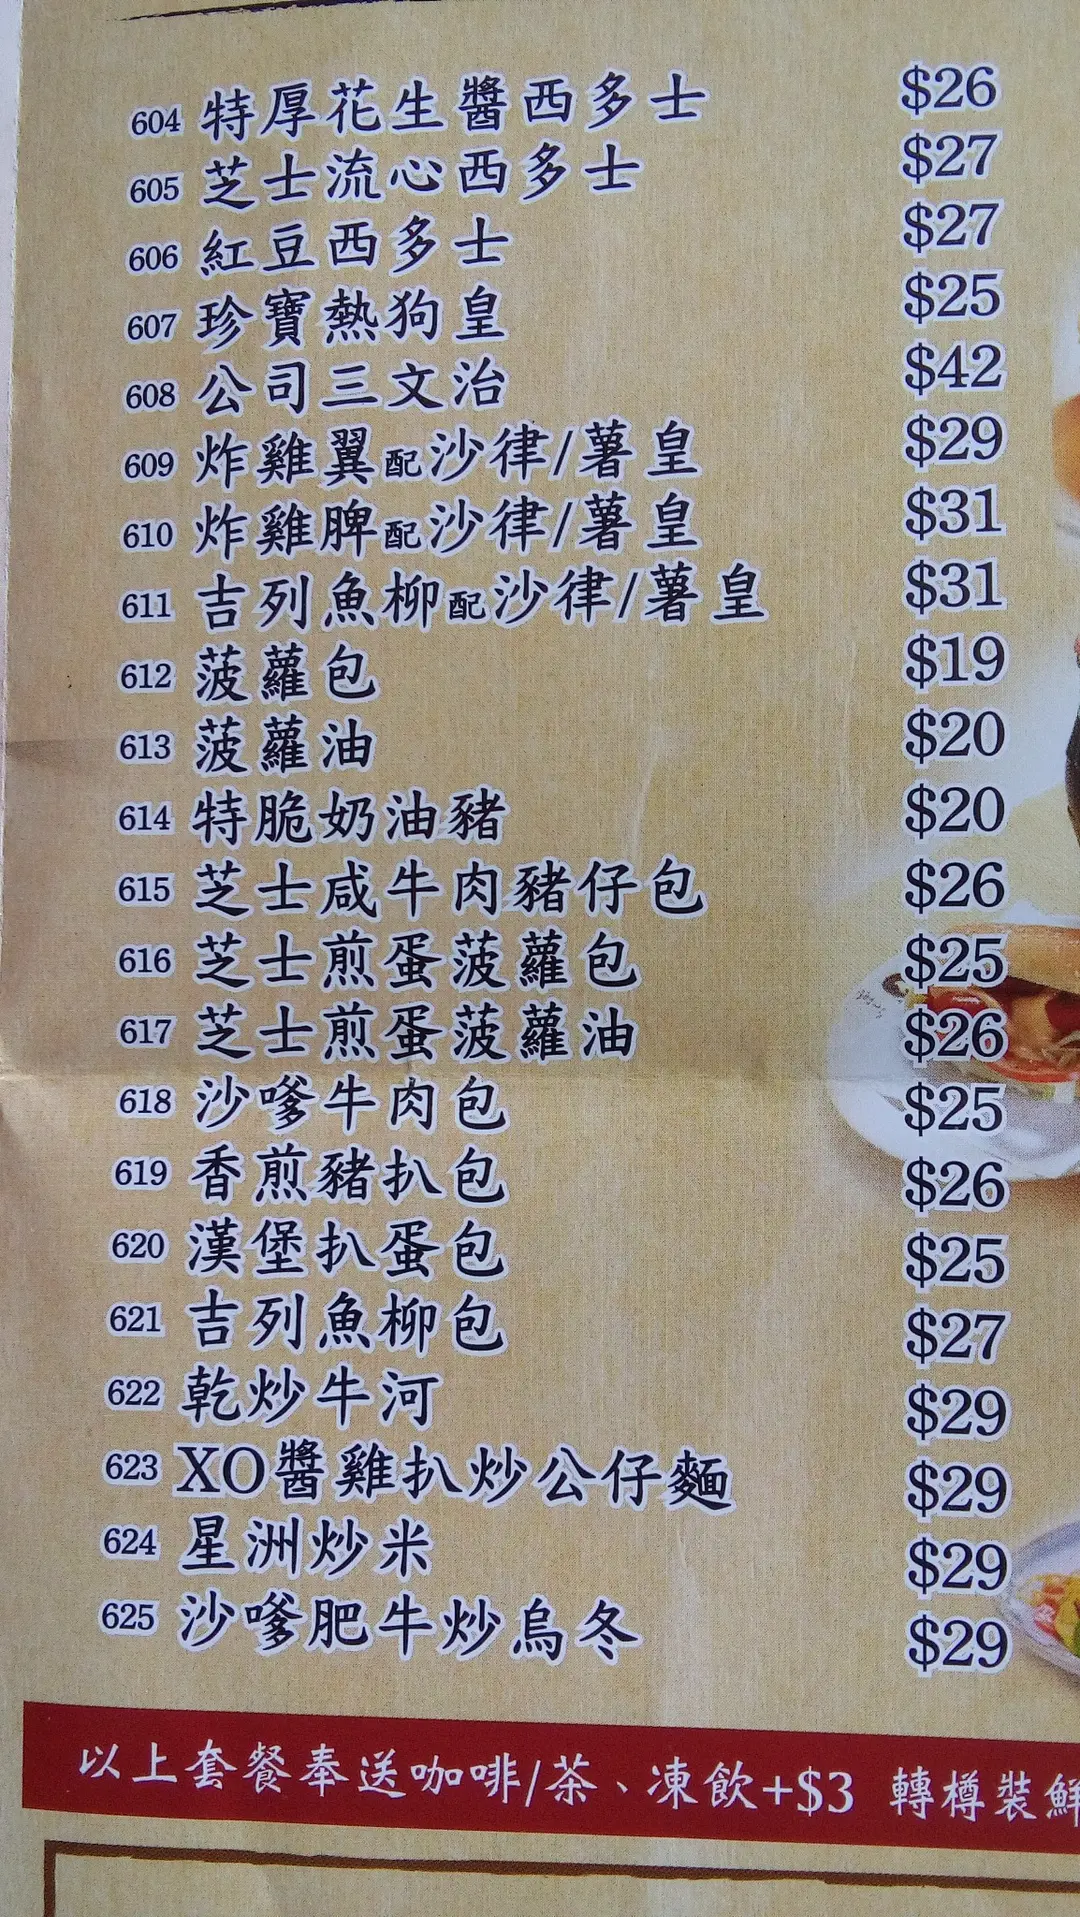 604 特厚花生醬西多士 $26
605 芝士流心西多士 $27
606 紅豆西多士 $27
607 珍寶熱狗皇 $25
608 公司三文治 $42
609 炸雞翼配沙律/薯皇 $29
610 炸雞脾配沙律/薯皇 $31
611 吉列魚柳配沙律/薯皇 $31
612 菠蘿包 $19
613 菠蘿油 $20
614 特脆奶油豬 $20
615 芝士咸牛肉豬仔包 $26
616 芝士煎蛋菠蘿包 $25
617 芝士煎蛋菠蘿油 $26
618 沙嗲牛肉包 $25
619 香煎豬扒包 $26
620 漢堡扒蛋包 $25
621 吉列魚柳包 $27
622 乾炒牛河 $29
623 XO醬雞扒炒公仔麵 $29
624 星洲炒米 $29
625 沙嗲肥牛炒烏冬 $29
以上套餐奉送咖啡/茶、凍飲+$3 轉樽裝鮮